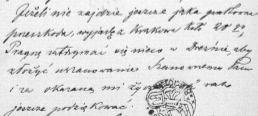 Jeżeli nie zajdzie jeszcze jaka
przeszkoda, wyjadę z Krakowa koło 20 b.m.
Pragnę zatrzymać się nieco w Dreźnie, aby
złożyć uszanowanie Szanownemu Panu
i za okazaną mi
jeszcze podziękować.